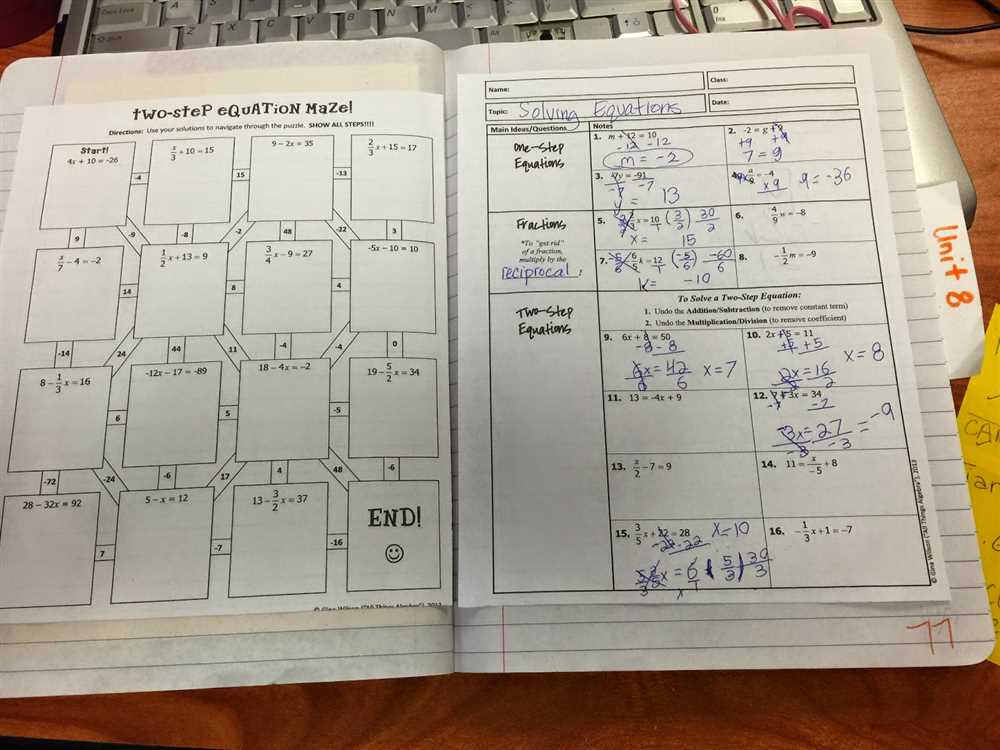 TWO-STEP EQUATION MAZE!
Directions: Use your solutions to navigate through the puzzle. SHOW ALL STEPS!!!!
Start!
4x + 10 = -26
x/3 + 10 = 15
9 – 2x = 35
2/3 x + 15 = 17
-4
15
-13
9
-9
-8
-2
48
-22
3
x/7 – 4 = –2
1/2 x + 13 = 9
3/4 x – 9 = 27
-5x – 10 = 10
14
8
4
-14
24
44
11
-4
-4
0
8 – 1/3 x = 16
-12x – 17 = -89
18 – 4x = –2
19 – 5/2 x = 34
6
5
-5
-72
-24
-6
17
4
48
-6
28 – 32x = 92
5 – x = 12
13 – 3/2 x = 37
END!
7
-7
-16
© Gina Wilson ("All Things Algebra"), 2012
Name:
Class:
Topic: Solving Equations
Date:
Main Ideas/Questions
Notes
One-Step
Equations
1. m + 12 = 10
-12 -12
m = -2
2. -2 = g + 9
+9 +9
7 = 9
3. -7y = -91
-7 -7
y = 13
= -4
x 9
a = -36
Fractions
*To "get rid"
of a fraction,
multiply by the
reciprocal.
5. x = 10/1 (3/2) 30/2
x = 15
6. 4/9 w = –8
7. -5/6 6/5 k = 12/1 (-5/6) -60/6
k = -10
8. -1/2 m = –9
Two-Step
Equations
To Solve a Two-Step Equation:
1. Undo the Addition/Subtraction (to remove constant term)
2. Undo the Multiplication/Division (to remove coefficient)
9. 6x + 8 = 50
-8 -8
6x = 42
6 6
x = 7
10. 2x – 5 = 11
+5 +5
2x = 16
2 2
x = 8
11. 13 = -4x + 9
12. 7 – 3x = 34
-7 -7
-3x = 27 = -9
-3 -3
13. x/2 – 7 = 9
14. 11 = x/-5 + 8
15. 3/5 x + 22 = 28 x = 10
-22 -22
x = 6/1 5/3 30/3
16. -1/3 x + 1 = –7
© Gina Wilson ("All Things Algebra"), 2012
77
Unit 8